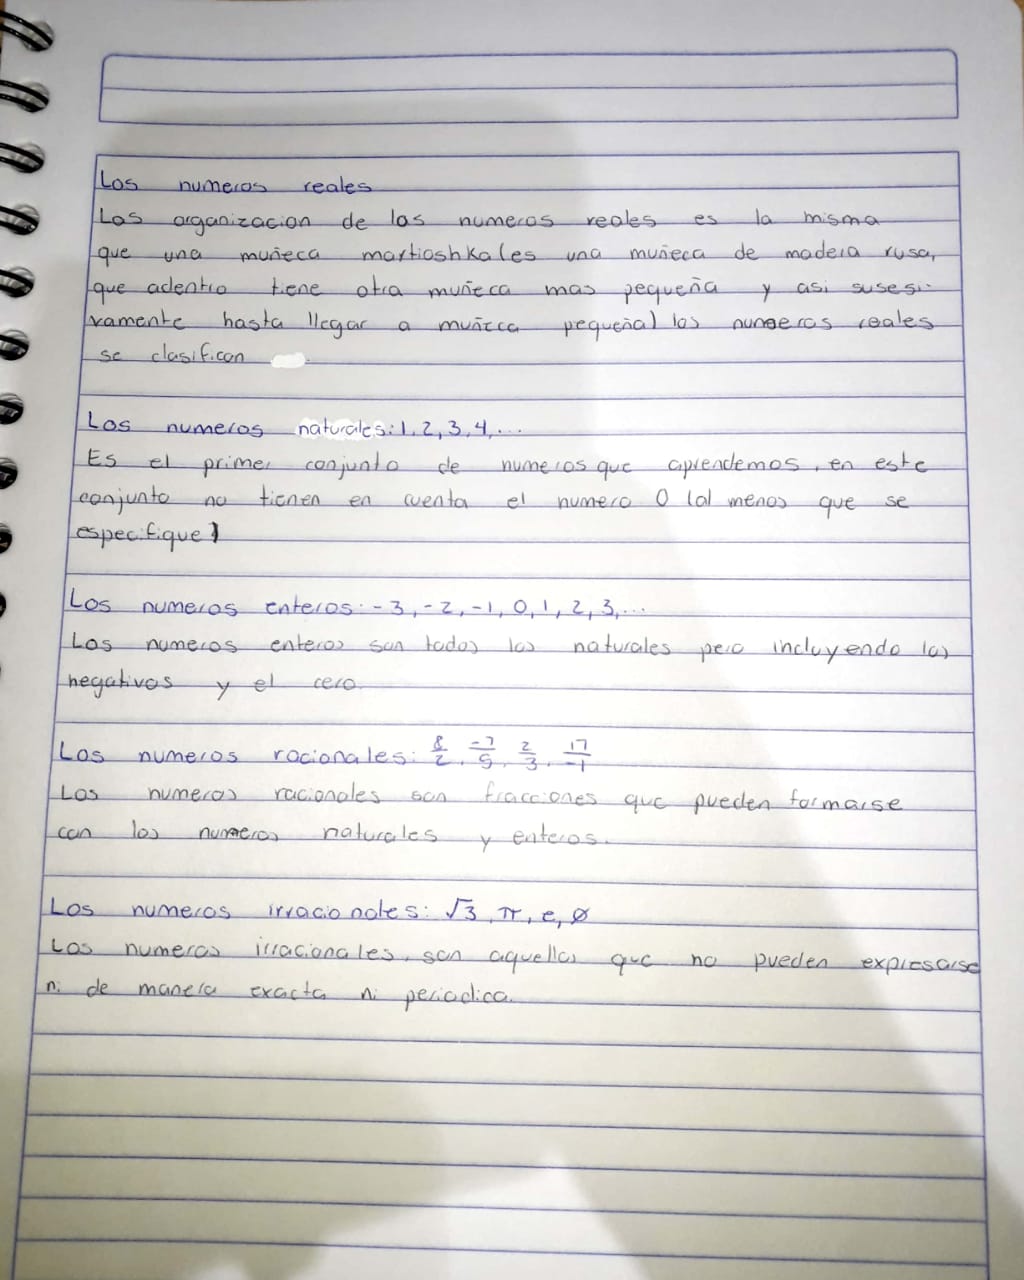 Los numeros reales
Los organizacion de los numeros reales es la misma
que una muñeca martioshka(es una muñeca de madera rusa,
que adentro tiene otra muñeca mas pequeña y asi susesi-
vamente hasta llegar a muñeca pequeña) los numeros reales
se clasifican .
Los numeros naturales: 1, 2, 3, 4, ...
Es el primer conjunto de numeros que aprendemos, en este
conjunto no tienen en cuenta el numero 0 (al menos que se
especifique)
Los numeros enteros: -3, -2, -1, 0, 1, 2, 3, ...
Los numeros enteros son todos los naturales pero incluyendo los
negativos y el cero.
Los numeros racionales: 8/2, -7/5, 2/3, 17/-1
Los numeros racionales son fracciones que pueden formarse
con los numeros naturales y enteros.
Los numeros irracionales: √3, π, e, ø
Los numeros irracionales, son aquellos que no pueden expresarse
ni de manera exacta ni periodica.